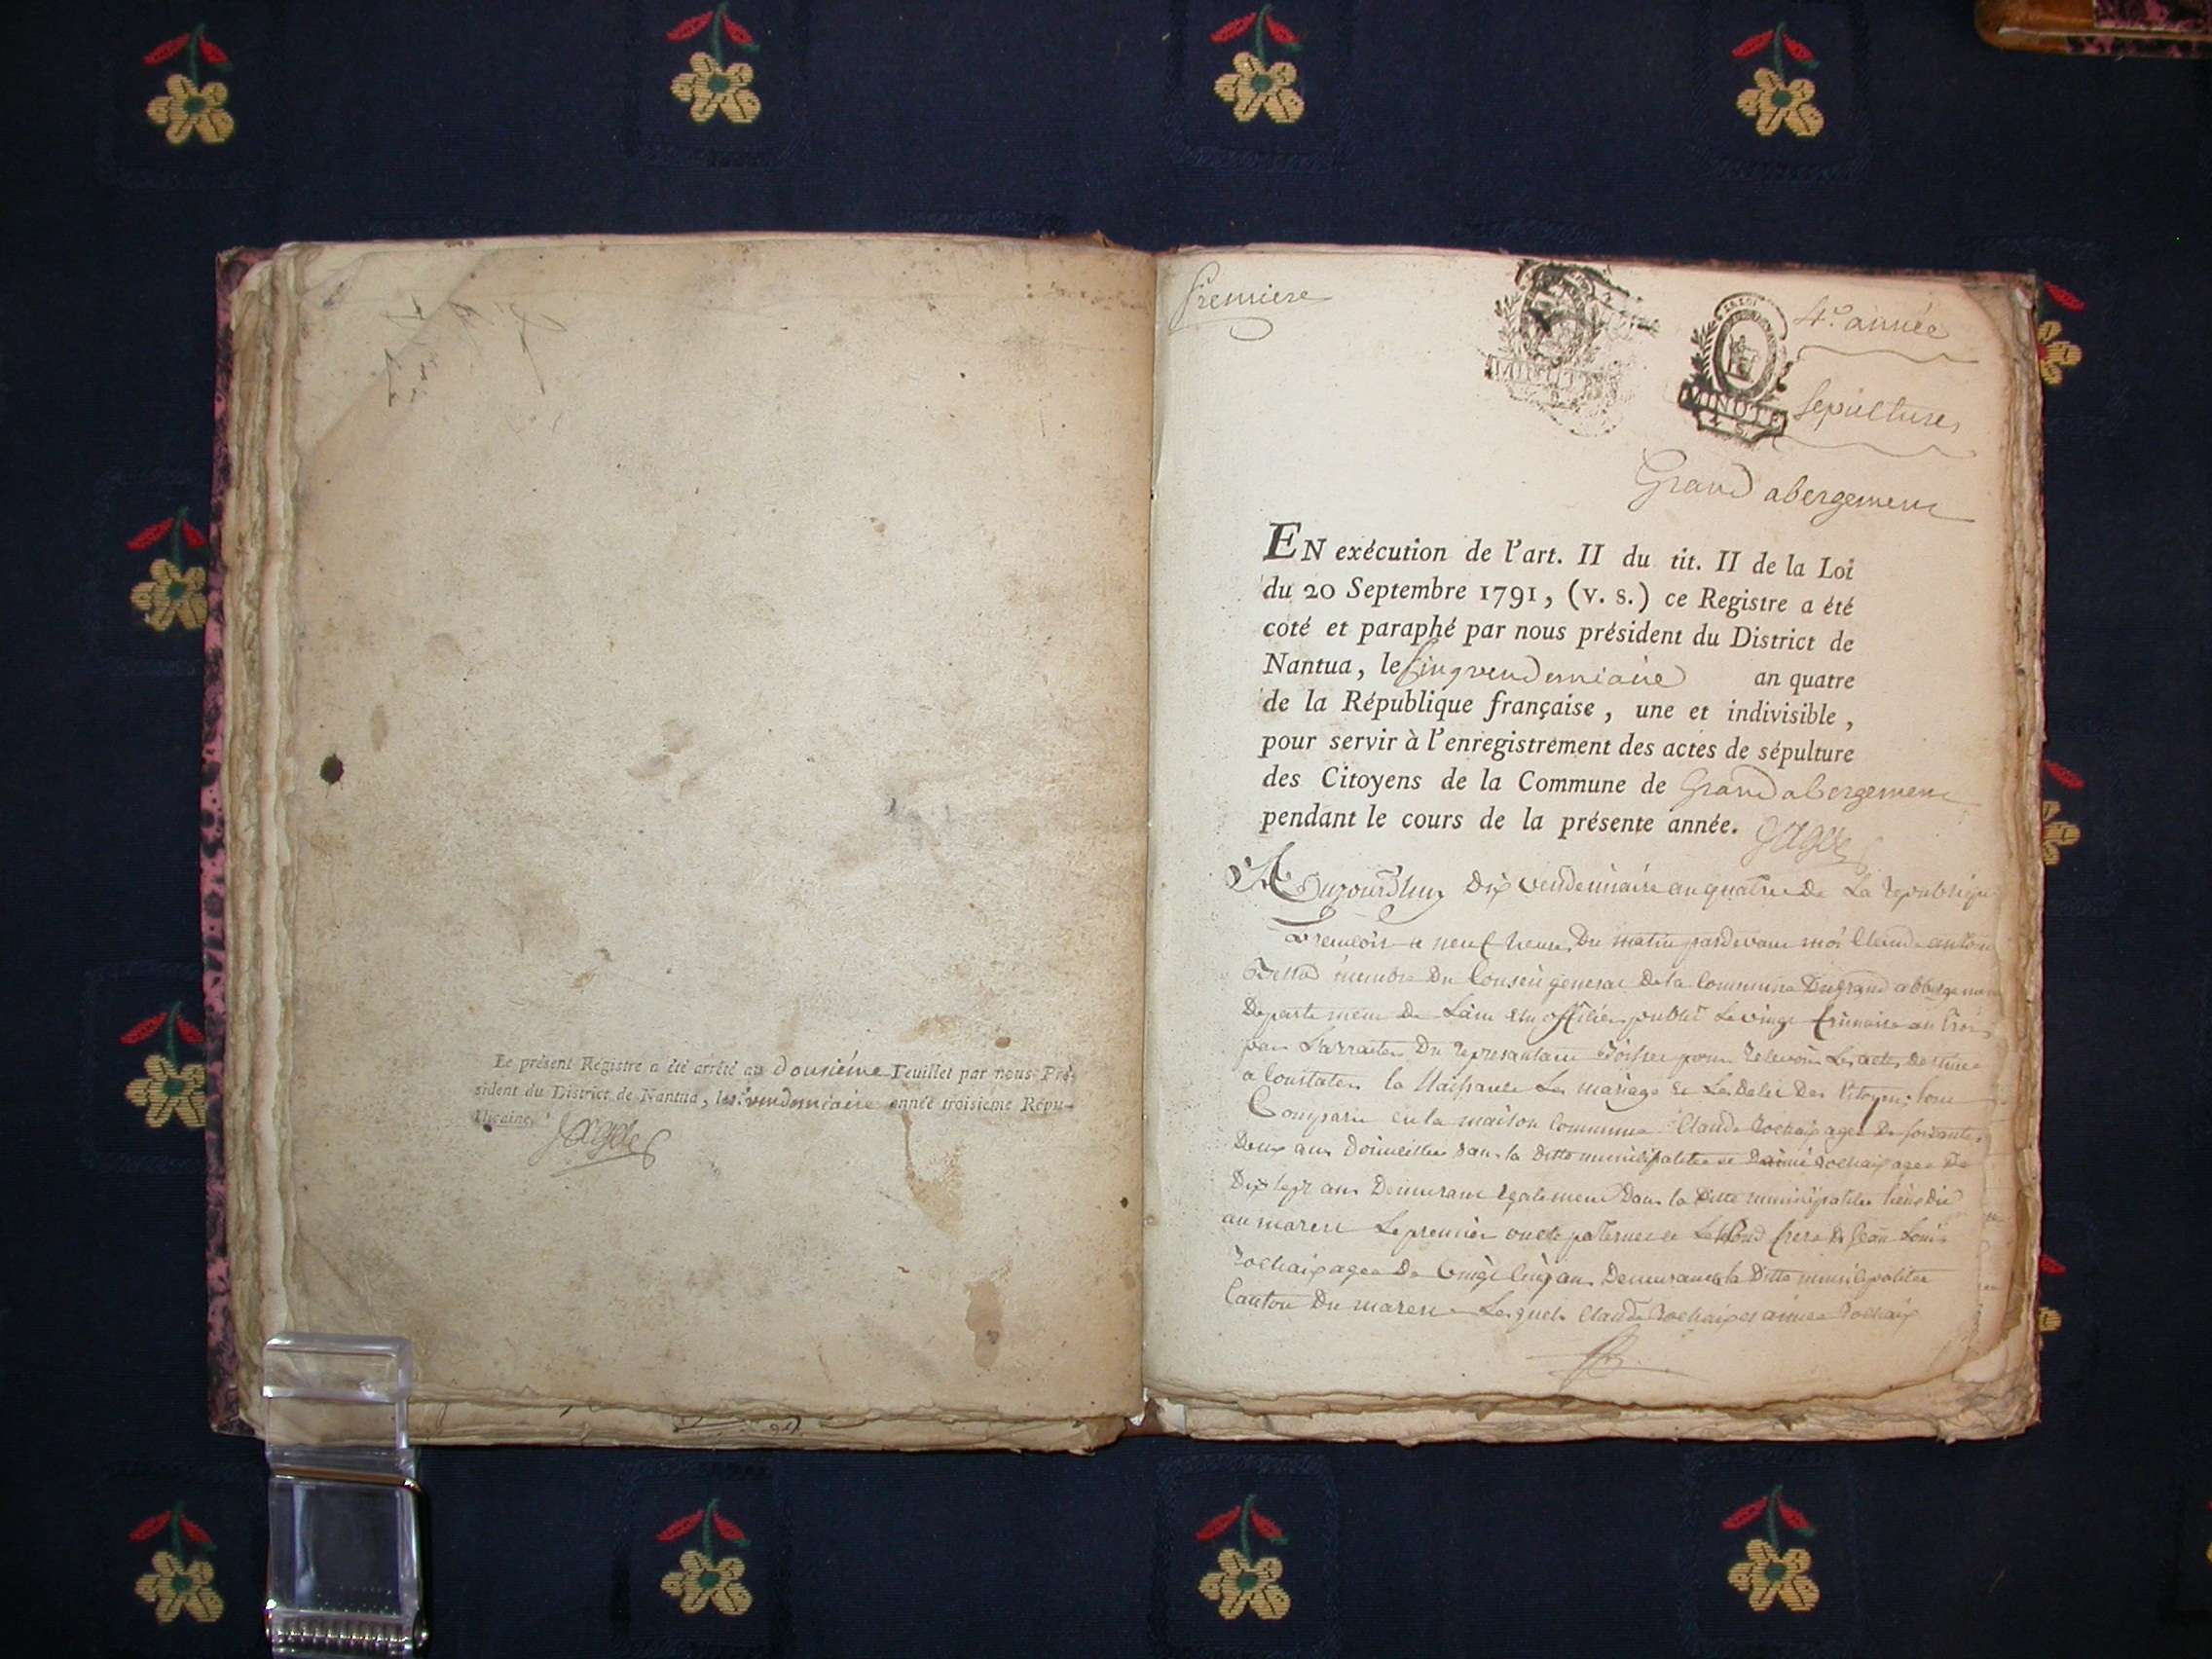 Le présent Régistre a été arrêté au Douzième Feuillet par nous Pré-
sident du District de Nantua, le vendemiaire année troisieme Répu-
blicaine.
Premiere
4e. année
MINUTE
Sepultures
Grand abergement
EN exécution de l'art. II du tit. II de la Loi
du 20 Septembre 1791, (v. s.) ce Registre a été
coté et paraphé par nous président du District de
Nantua, le Cinq vendemiaire an quatre
de la République française, une et indivisible,
pour servir à l'enregistrement des actes de sépulture
des Citoyens de la Commune de Grand abergement
pendant le cours de la présente année.
Aujourd'huy Dix vendemiaire an quatre De La republique
a neuf heures Du matin pardevant moi Claude antoine
membre Du Conseil general De la Commune Du grand abbergement
Departement De Lain Elu officier public Le vingt frimaire an trois
par L'arraiter Du representant pour recevoir Les actes Destinés
a Constater la Naissance Le mariage et Les Deces Des Citoyens sont
Comparu en la maison Commune Claude Rochaix agee De soixante
Deux ans Domicillier dans la Ditte municipalitee et aimé Rochaix agee De
Dix sept ans Demurant egalement Dans la Ditte municipalitee
Le premier oncle paternel et Le second frere De Jean Louis
Rochaix agee De Vingt Cinq ans Demurant la Ditte municipalitee
Canton Du Lesquels Claude Rochaix et aimee Rochaix